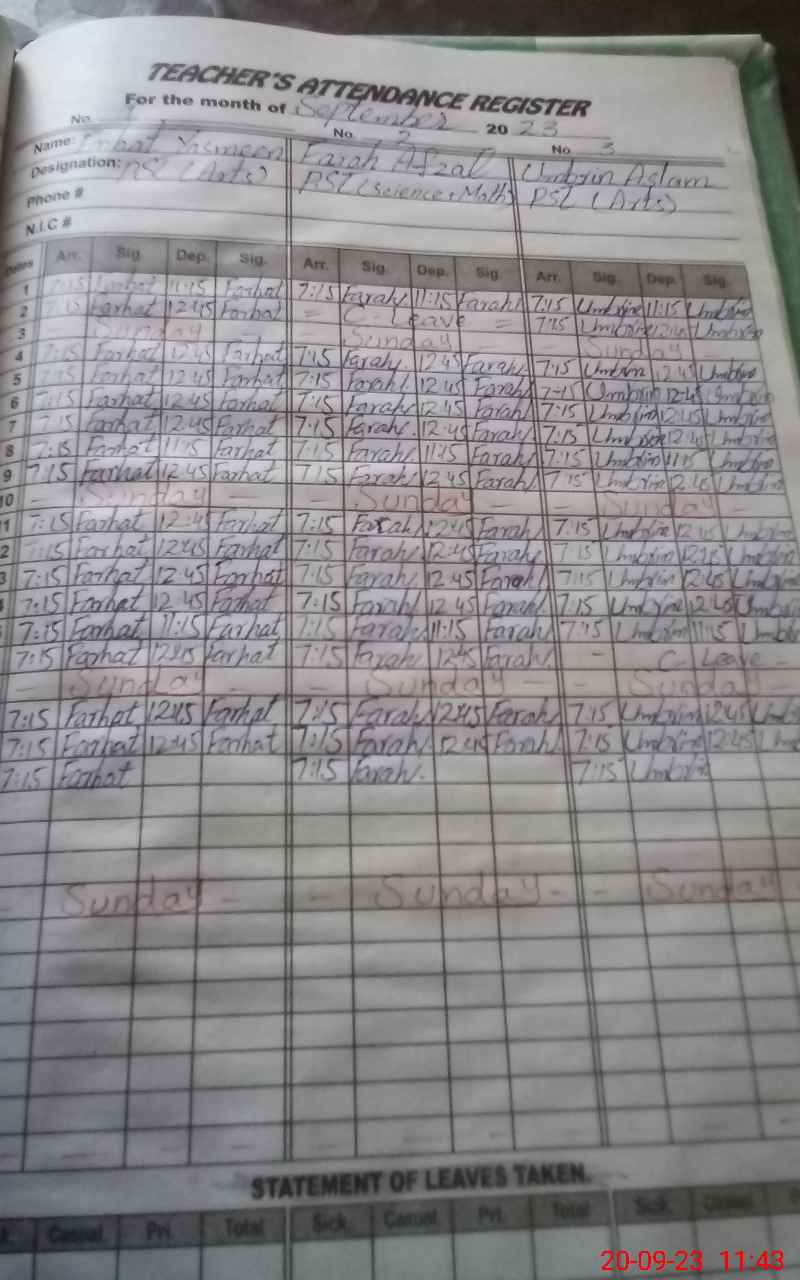 TEACHER'S ATTENDANCE REGISTER
For the month of September 2023
No. 1 No. 2 No. 3
Name: Farhat Yasmeen Farah Afzal Umbrin Aslam
Designation: PST (Arts) PST (Science + Math) PST (Arts)
Phone #
N.I.C #
Dates Arr. Sig. Dep. Sig. Arr. Sig. Dep. Sig. Arr. Sig. Dep. Sig.
1 7:15 Farhat 11:15 Farhat 7:15 Farah 11:15 Farah 7:15 Umbrin 11:15 Umbrin
2 7:15 Farhat 12:45 Farhat = C-Leave = 7:15 Umbrin 12:45 Umbrin
3 Sunday - - Sunday - - Sunday
4 7:15 Farhat 12:45 Farhat 7:15 Farah 12:45 Farah 7:15 Umbrin 12:45 Umbrin
5 7:15 Farhat 12:45 Farhat 7:15 Farah 12:45 Farah 7:15 Umbrin 12:45 Umbrin
6 7:15 Farhat 12:45 Farhat 7:15 Farah 12:45 Farah 7:15 Umbrin 12:45 Umbrin
7 7:15 Farhat 12:45 Farhat 7:15 Farah 12:45 Farah 7:15 Umbrin 12:45 Umbrin
8 7:15 Farhat 11:15 Farhat 7:15 Farah 11:15 Farah 7:15 Umbrin 11:15 Umbrin
9 7:15 Farhat 12:45 Farhat 7:15 Farah 12:45 Farah 7:15 Umbrin 12:45 Umbrin
10 - Sunday - - Sunday - - Sunday -
1 7:15 Farhat 12:45 Farhat 7:15 Farah 12:45 Farah 7:15 Umbrin 12:45 Umbrin
2 7:15 Farhat 12:45 Farhat 7:15 Farah 12:45 Farah 7:15 Umbrin 12:45 Umbrin
3 7:15 Farhat 12:45 Farhat 7:15 Farah 12:45 Farah 7:15 Umbrin 12:45 Umbrin
7:15 Farhat 12:45 Farhat 7:15 Farah 12:45 Farah 7:15 Umbrin 12:45 Umbrin
7:15 Farhat 11:15 Farhat 7:15 Farah 11:15 Farah 7:15 Umbrin 11:15 Umbrin
7:15 Farhat 12:45 Farhat 7:15 Farah 12:45 Farah - C-Leave -
- Sunday - - Sunday - - Sunday -
7:15 Farhat 12:45 Farhat 7:15 Farah 12:45 Farah 7:15 Umbrin 12:45 Umb
7:15 Farhat 12:45 Farhat 7:15 Farah 12:45 Farah 7:15 Umbrin 12:45 Um
7:15 Farhat 7:15 Farah 7:15 Umbrin
- Sunday - - Sunday - - Sunday
STATEMENT OF LEAVES TAKEN.
Casual. Pri. Total Sick. Casual. Pri. Total Sick. Casual.
20-09-23 11:43